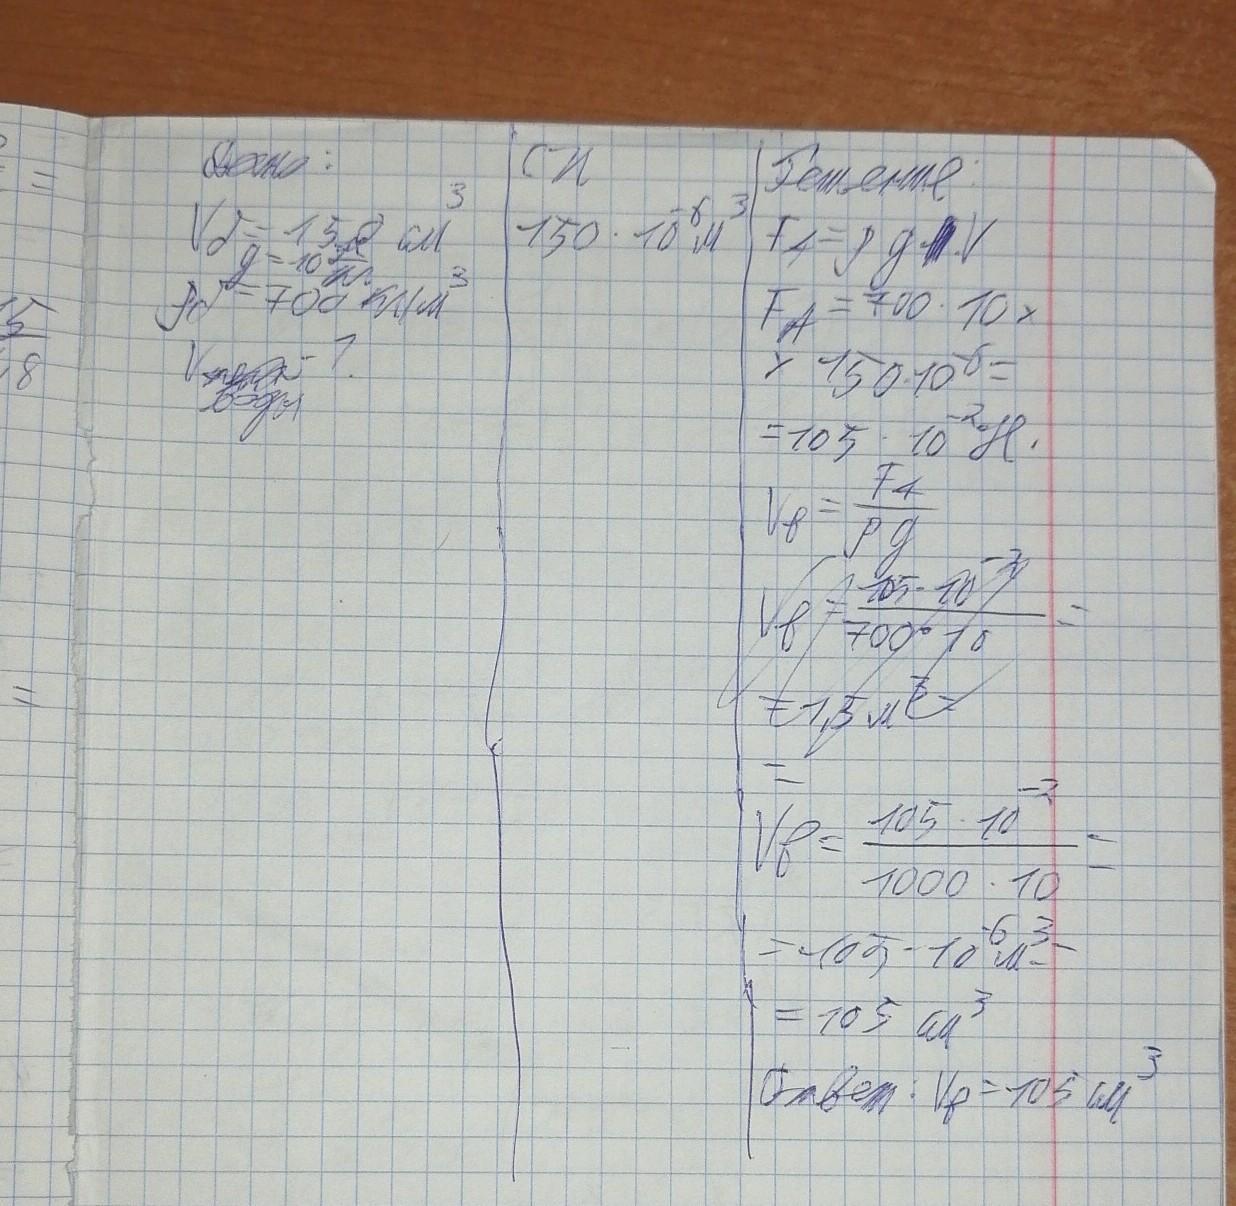 Дано:
Vд = 150 см³
g = 10 Н/кг
ρд = 700 кг/м³
V воды - ?
СИ
150 · 10⁻⁶ м³
Решение:
FA = ρ g V
FA = 700 · 10 ×
× 150 · 10⁻⁶ =
= 105 · 10⁻² Н.
Vв = FA / ρ g
Vв = 105 · 10⁻² / 700 · 10 =
= 1,5 м³ =
=
Vв = 105 · 10⁻² / 1000 · 10 =
= 105 · 10⁻⁶ м³ =
= 105 см³
Ответ: Vв = 105 см³
=
15
8
=